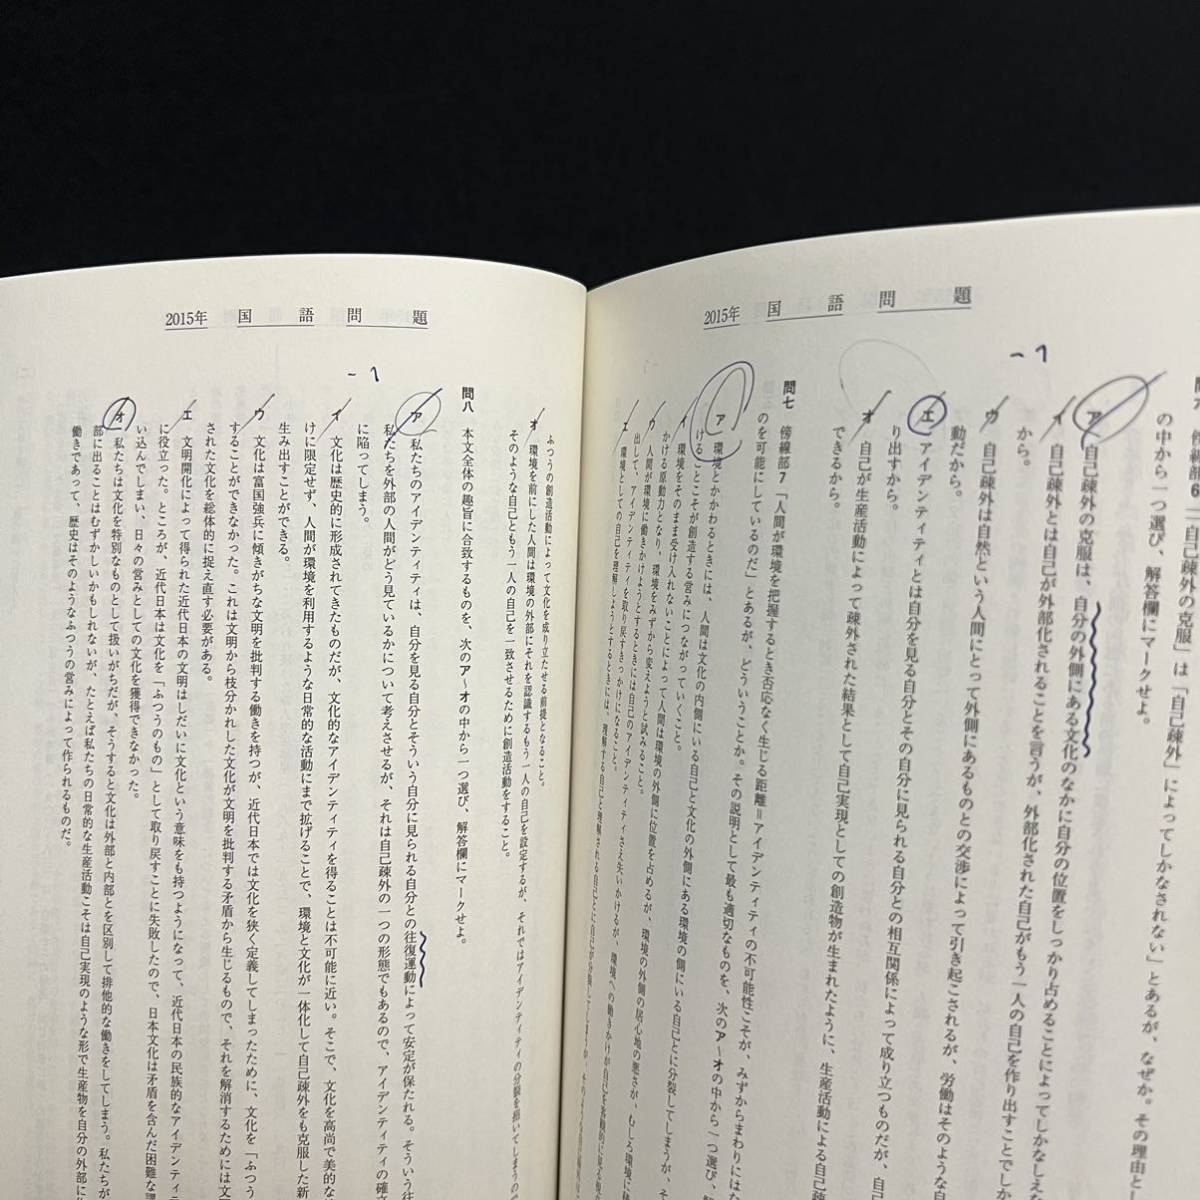 2015年 国語問題
問六 傍線部6「自己疎外の克服」は「自己疎外」によってしかなされない」とあるが、なぜか。その理由と
の中から一つ選び、解答欄にマークせよ。
-1
ア 自己疎外の克服は、自分の外側にある文化のなかに自分の位置をしっかり占めることによってしかなしえ
から。
イ 自己疎外とは自己が外部化されることを言うが、外部化された自己がもう一人の自己を作り出すことでしか
ウ 自己疎外は自然という人間にとって外側にあるものとの交渉によって引き起こされるが、労働はそのような自
動だから。
エ アイデンティティとは自分を見る自分とその自分に見られる自分との相互関係によって成り立つものだが、自
り出すから。
オ 自己が生産活動によって疎外された結果として自己実現としての創造物が生まれたように、生産活動による自
できるから。
問七 傍線部7「人間が環境を把握するとき否応なく生じる距離=アイデンティティの不可能性こそが、みずからまわりには
のを可能にしているのだ」とあるが、どういうことか。その説明として最も適切なものを、次のア～オの中から一つ選び、解
ア 環境とかかわるときには、人間は文化の内側にいる自己と文化の外側にある環境の側にいる自己とに分裂してしまうが、そ
けることこそが創造する営みにつながっていくこと。
イ 環境をそのまま受け入れないことによって人間は環境の外側に位置を占めるが、環境の外側の居心地の悪さが、むしろ環境に
かける原動力となり、環境をみずから変えようと試みること。
ウ 人間が環境に働きかけようとするときには自己のアイデンティティさえ失いかけるが、環境への働きかけが自己を客観的に見る
出して、アイデンティティを取り戻すきっかけになること。
エ 環境としての自己を理解しようとするときには、理解する自己と理解される自己とに自己が分裂してしまうが、そのような自己
ふつうの創造活動によって文化を成り立たせる前提となること。
オ 環境を前にした人間は環境の外部にそれを認識するもう一人の自己を設定するが、それではアイデンティティの分裂を招いてしまうの
そのような自己ともう一人の自己を一致させるために創造活動をすること。
2015年 国語問題
問八 本文全体の趣旨に合致するものを、次のア～オの中から一つ選び、解答欄にマークせよ。
-1
ア 私たちのアイデンティティは、自分を見る自分とそういう自分に見られる自分との往復運動によって安定が保たれる。そういう往
私たちを外部の人間がどう見ているかについて考えさせるが、それは自己疎外の一つの形態でもあるので、アイデンティティの確立
に陥ってしまう。
イ 文化は歴史的に形成されてきたものだが、文化的なアイデンティティを得ることは不可能に近い。そこで、文化を高尚で美的な
けに限定せず、人間が環境を利用するような日常的な活動にまで拡げることで、環境と文化が一体化して自己疎外をも克服した新
生み出すことができる。
ウ 文化は富国強兵に傾きがちな文明を批判する働きを持つが、近代日本では文化を狭く定義してしまったために、文化を「ふつう
することができなかった。これは文明から枝分かれした文化が文明を批判する矛盾から生じるもので、それを解消するためには文
された文化を総体的に捉え直す必要がある。
エ 文明開化によって得られた近代日本の文明はしだいに文化という意味をも持つようになって、近代日本の民族的なアイデンティ
に役立った。ところが、近代日本は文化を「ふつうのもの」として取り戻すことに失敗したので、日本文化は矛盾を含んだ困難な課
い込んでしまい、日々の営みとしての文化を獲得できなかった。
オ 私たちは文化を特別なものとして扱いがちだが、そうすると文化は外部と内部とを区別して排他的な働きをしてしまう。私たちが
部に出ることはむずかしいかもしれないが、たとえば私たちの日常的な生産活動こそは自己実現のような形で生産物を自分の外部に
働きであって、歴史はそのようなふつうの営みによって作られるものだ。